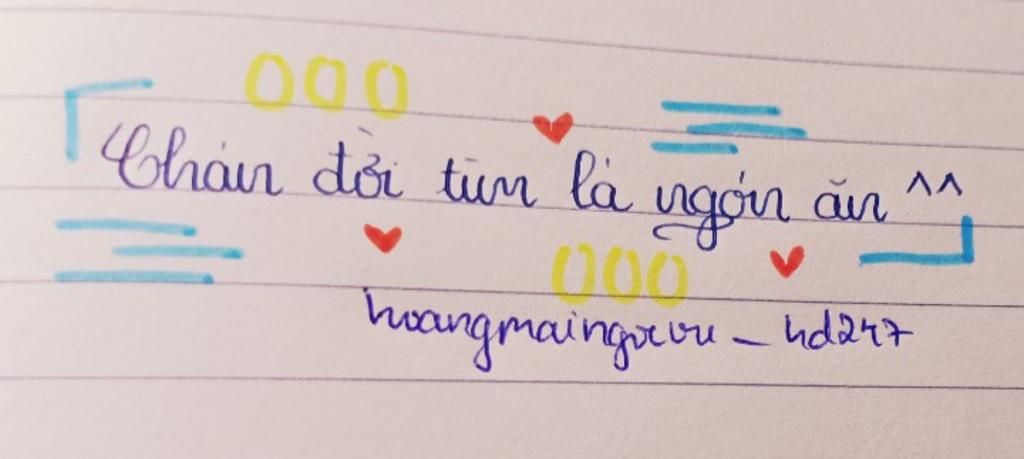 Chán đời tìm lá ngón ăn ^^
hoangmaingocvu _ hd247